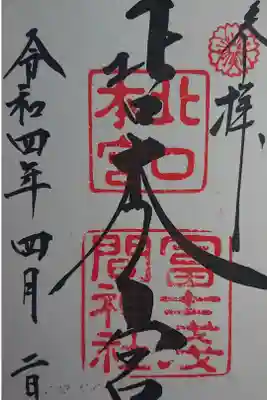 奉拝
北口本宮
北口
本宮
冨士浅
間神社
令和四年 四月 二日